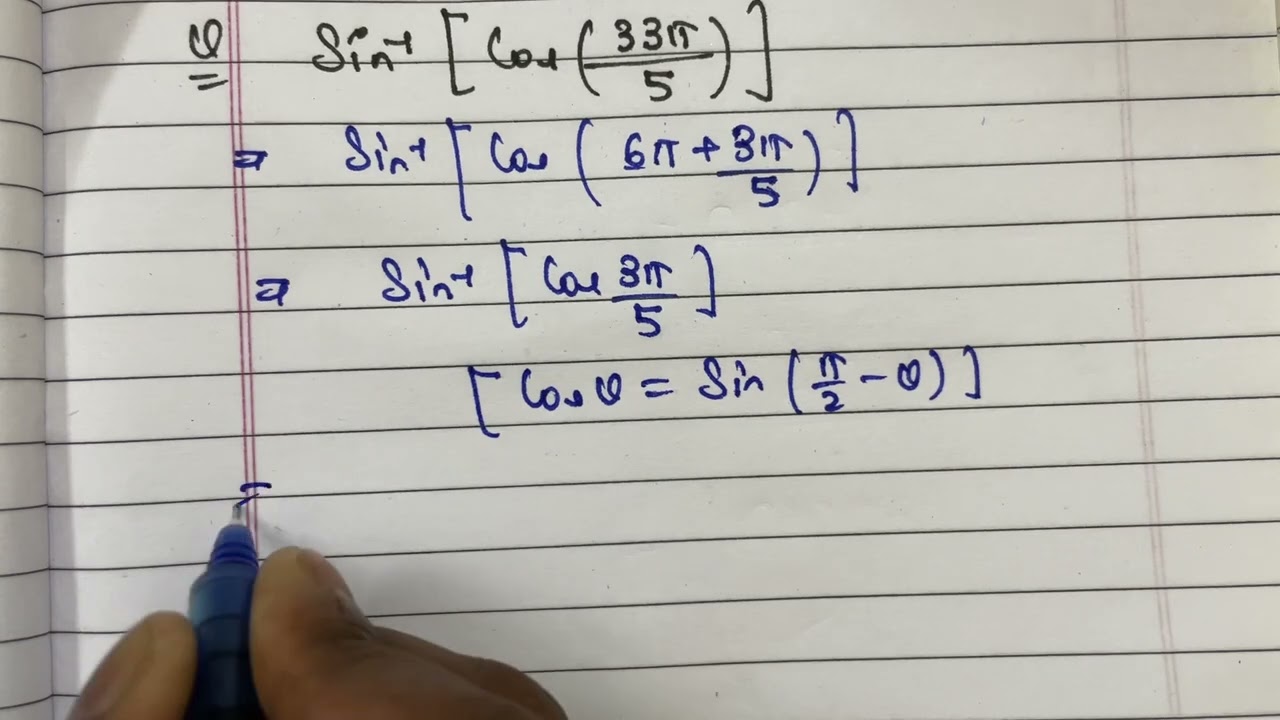 Q Sin⁻¹ [ Cos ( 33π/5 ) ]
= Sin⁻¹ [ Cos ( 6π + 3π/5 ) ]
= Sin⁻¹ [ Cos 3π/5 ]
[ Cos θ = Sin ( π/2 - θ ) ]
=